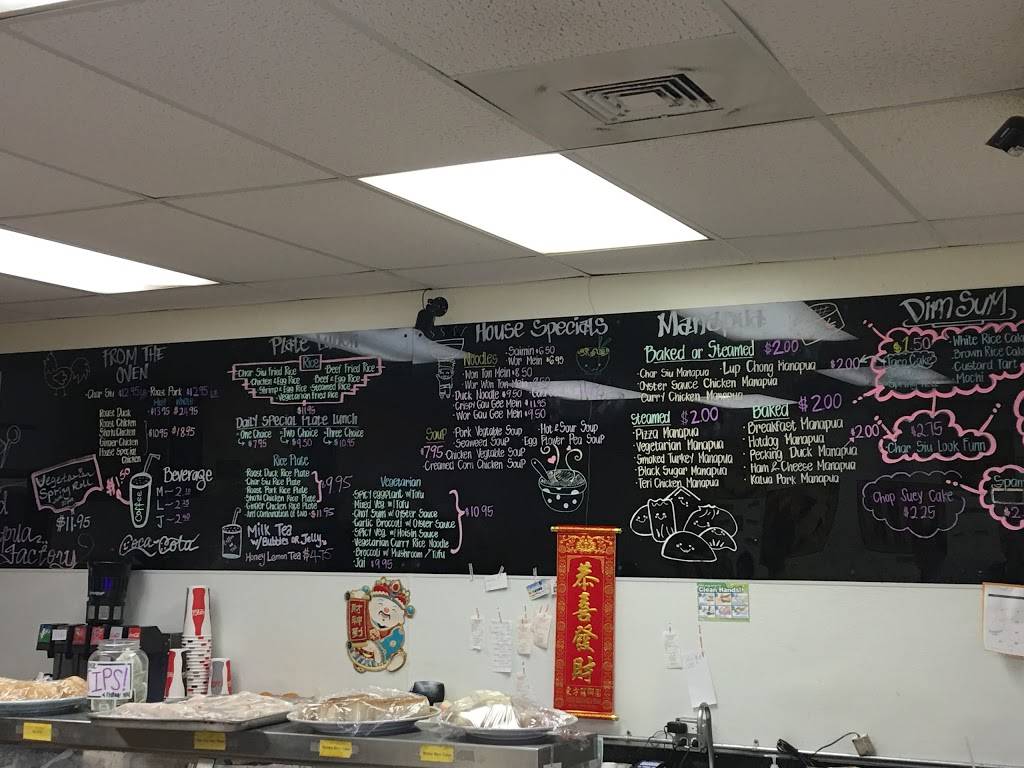 FROM THE OVEN
Char Siu $12.95 LB
Roast Pork $12.95 LB
Half Whole
Roast Duck $13.95 $24.95
Roast Chicken
Shoyu Chicken
Ginger Chicken
House Special Chicken
$10.95 $18.95
Vegetarian Spring Roll
$11.95
Coffee
Beverage
M
L
J
Coca-Cola
Factory
Plate Lunch
Rice
Char Siu Fried Rice
Beef Fried Rice
Chicken & Egg Rice
Beef & Egg Rice
Shrimp & Egg Rice
Steamed Rice
Vegetarian Fried Rice
$11.95
Daily Special Plate Lunch
One Choice $7.95
Two Choice $9.50
Three Choice $10.95
Rice Plate
Roast Duck Rice Plate
Char Siu Rice Plate
Roast Pork Rice Plate
Shoyu Chicken Rice Plate
Ginger Chicken Rice Plate
Any combination of two - $11.95
$9.95
Milk Tea
w/Bubbles or Jelly
Honey Lemon Tea $4.75
Vegetarian
Spicy Eggplant w/Tofu
Mixed Veg. w/Tofu
Choy Sum w/ Oyster Sauce
Garlic Broccoli w/ Oyster Sauce
Spicy Veg. w/ Hoisin Sauce
Vegetarian Curry Rice Noodle
Broccoli w/ Mushroom / Tofu
Jai $9.95
$10.95
House Specials
Noodles
Saimin $6.50
Wor Mein $6.95
Won Ton Mein $8.50
Wor Won Ton Mein
Duck Noodle $9.50
Crispy Gau Gee Mein $11.95
Wor Gau Gee Mein $9.50
Soup
$7.95
Pork Vegetable Soup
Hot & Sour Soup
Seaweed Soup
Egg Flower Pea Soup
Chicken Vegetable Soup
Creamed Corn Chicken Soup
Manapua
Baked or Steamed $2.00
Char Siu Manapua
Lup Chong Manapua
Oyster Sauce Chicken Manapua
Curry Chicken Manapua
Steamed $2.00
Pizza Manapua
Vegetarian Manapua
Smoked Turkey Manapua
Black Sugar Manapua
Teri Chicken Manapua
Baked $2.00
Breakfast Manapua
Hotdog Manapua
Pecking Duck Manapua
Ham & Cheese Manapua
Kalua Pork Manapua
Dim Sum
$1.50
$2.00
Taro Cake
White Rice Cake
Brown Rice Cake
Custard Tart
Mochi
$2.00
$2.75
Char Siu Look Funn
Chop Suey Cake
$2.25
Spam
$2.
恭喜發財
財神到
Clean Hands!
TIPS!